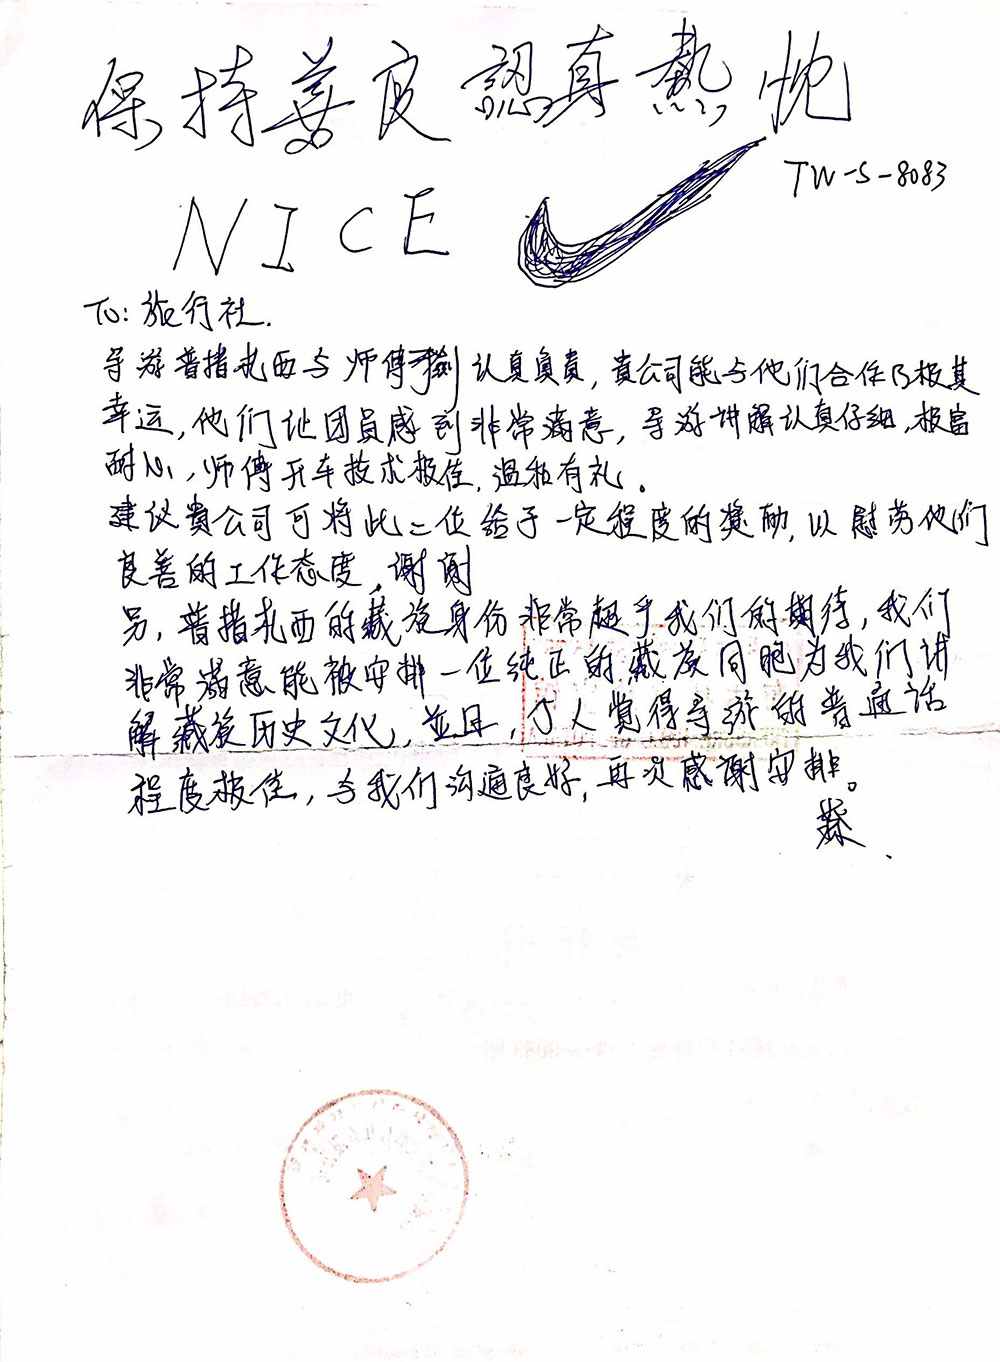 保持善良認真熱忱
NICE
TW-S-8083
To: 旅行社.
导游普措扎西与师傅 认真負責, 貴公司能与他们合作乃极其
幸运, 他们让团员感到非常满意, 导游讲解认真仔细, 极富
耐心, 师傅开车技术极佳, 温和有礼.
建议貴公司可将此二位给予一定程度的奖励, 以慰劳他们
良善的工作态度, 谢谢
另, 普措扎西的藏族身份非常超乎我们的期待, 我们
非常满意能被安排一位纯正的藏族同胞为我们讲
解藏族历史文化, 並且, 个人覚得导游的普通话
程度极佳, 与我们沟通良好, 再次感谢安排。
蔡